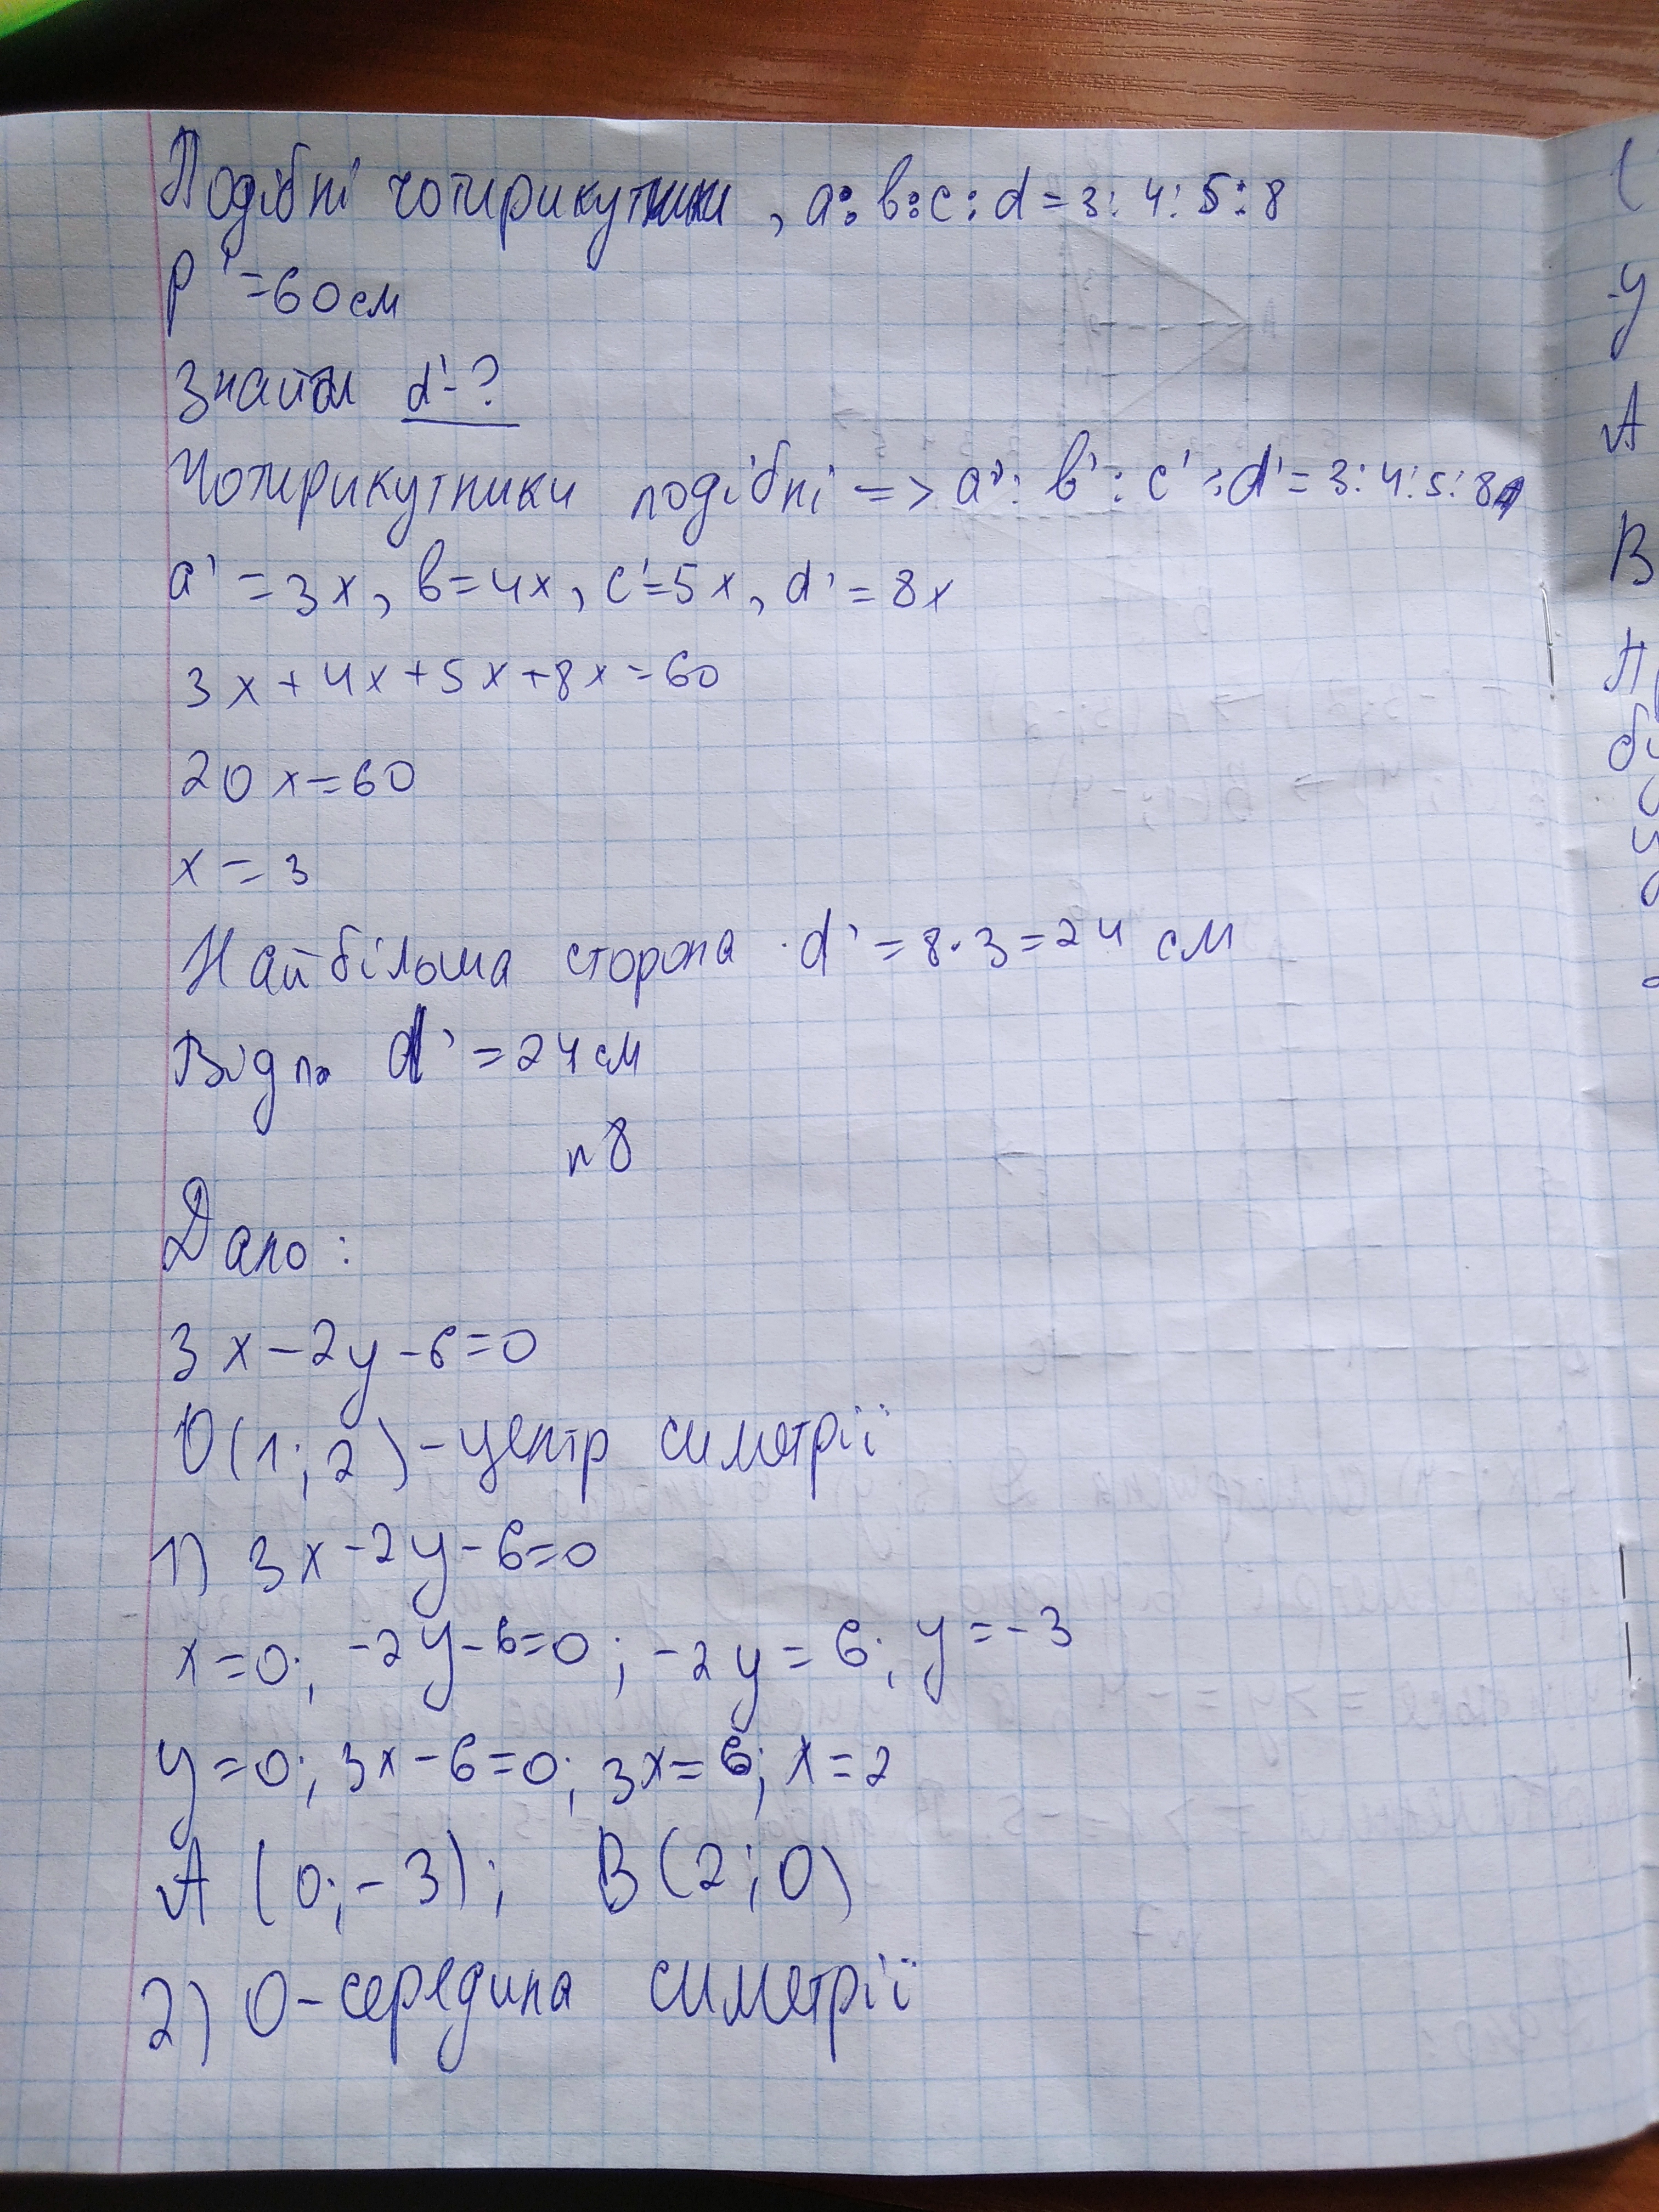 Подібні чотирикутники, a:b:c:d=3:4:5:8
P'=60см
Знайти d'-?
Чотирикутники подібні => a':b':c':d'=3:4:5:8
a'=3x, b=4x, c'=5x, d'=8x
3x+4x+5x+8x=60
20x=60
x=3
Найбільша сторона d'=8·3=24 см
Відп. d'=24см
n8
Дано:
3x-2y-6=0
O(1;2)-центр симетрії
1) 3x-2y-6=0
x=0; -2y-6=0; -2y=6; y=-3
y=0; 3x-6=0; 3x=6; x=2
A(0;-3); B(2;0)
2) O-середина симетрії
(
-y
A
B